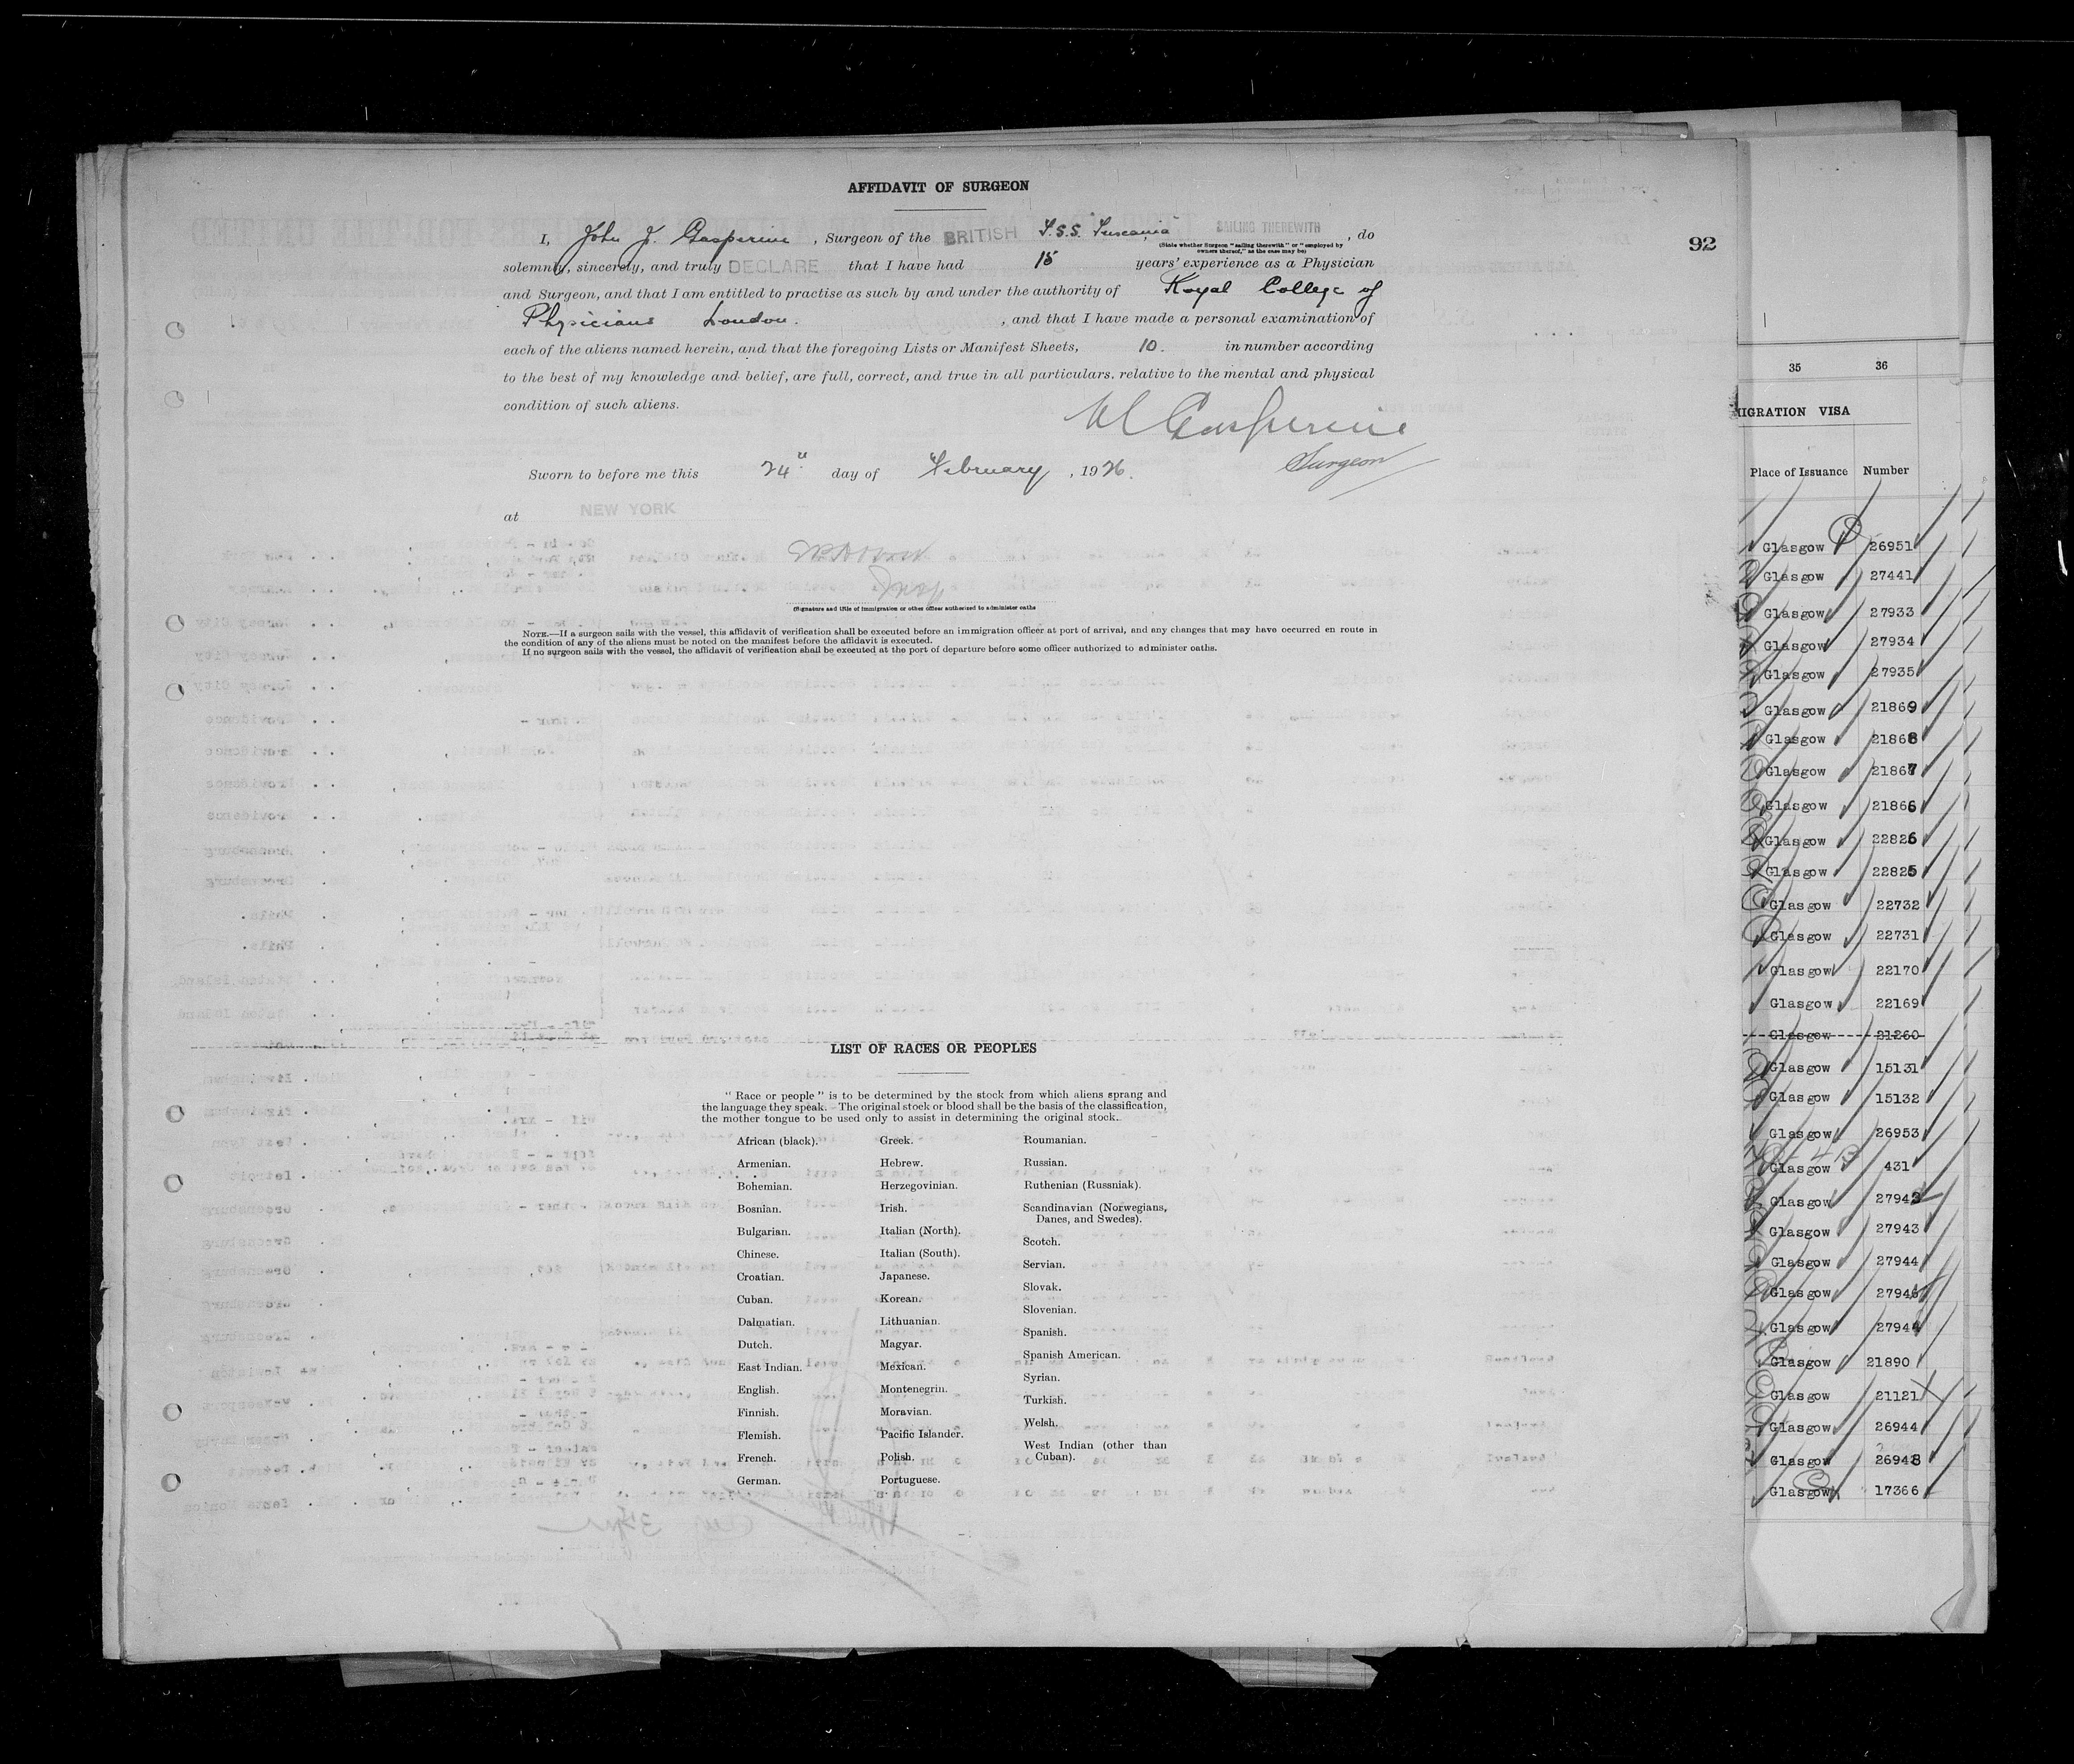 AFFIDAVIT OF SURGEON
I, John J. Gasperine, Surgeon of the BRITISH T.S.S. "Tuscania" SAILING THEREWITH, do
(State whether Surgeon "sailing therewith" or "employed by owners thereof," as the case may be)
92
solemnly, sincerely, and truly DECLARE that I have had 15 years' experience as a Physician
and Surgeon, and that I am entitled to practise as such by and under the authority of Royal College of
Physicians London., and that I have made a personal examination of
each of the aliens named herein, and that the foregoing Lists or Manifest Sheets, 10. in number according
to the best of my knowledge and belief, are full, correct, and true in all particulars. relative to the mental and physical
condition of such aliens.
Gasperine
Surgeon
Sworn to before me this 24" day of February, 1926.
at NEW YORK
(Signature and title of immigration or other officer authorized to administer oaths
NOTE.—If a surgeon sails with the vessel, this affidavit of verification shall be executed before an immigration officer at port of arrival, and any changes that may have occurred en route in
the condition of any of the aliens must be noted on the manifest before the affidavit is executed.
If no surgeon sails with the vessel, the affidavit of verification shall be executed at the port of departure before some officer authorized to administer oaths.
LIST OF RACES OR PEOPLES
"Race or people" is to be determined by the stock from which aliens sprang and
the language they speak. The original stock or blood shall be the basis of the classification,
the mother tongue to be used only to assist in determining the original stock.
African (black).
Armenian.
Bohemian.
Bosnian.
Bulgarian.
Chinese.
Croatian.
Cuban.
Dalmatian.
Dutch.
East Indian.
English.
Finnish.
Flemish.
French.
German.
Greek.
Hebrew.
Herzegovinian.
Irish.
Italian (North).
Italian (South).
Japanese.
Korean.
Lithuanian.
Magyar.
Mexican.
Montenegrin.
Moravian.
Pacific Islander.
Polish.
Portuguese.
Roumanian.
Russian.
Ruthenian (Russniak).
Scandinavian (Norwegians,
Danes, and Swedes).
Scotch.
Servian.
Slovak.
Slovenian.
Spanish.
Spanish American.
Syrian.
Turkish.
Welsh.
West Indian (other than
Cuban).
35 36
MIGRATION VISA
Place of Issuance Number
Glasgow 26951
Glasgow 27441
Glasgow 27933
Glasgow 27934
Glasgow 27935
Glasgow 21869
Glasgow 21868
Glasgow 21867
Glasgow 21866
Glasgow 22826
Glasgow 22825
Glasgow 22732
Glasgow 22731
Glasgow 22170
Glasgow 22169
Glasgow 21260
Glasgow 15131
Glasgow 15132
Glasgow 26953
Glasgow 431
Glasgow 27942
Glasgow 27943
Glasgow 27944
Glasgow 27946
Glasgow 27944
Glasgow 21890
Glasgow 21121
Glasgow 26944
Glasgow 26948
Glasgow 17366